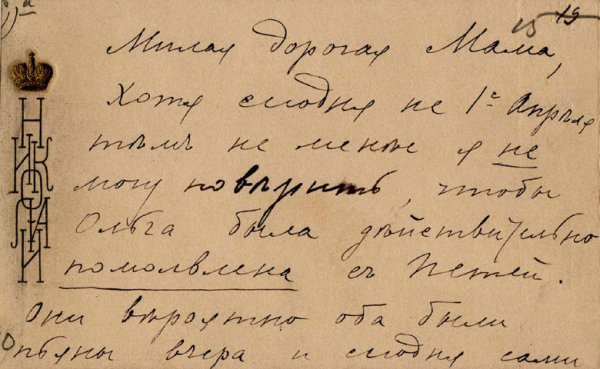 15 19
Милая дорогая Мама,
Хотя сегодня не 1е Апреля
темъ не менее я не
могу повѣрить, чтобы
Ольга была дѣйствительно
помолвлена съ Петей.
Они вѣроятно оба были
пьяны вчера и сегодня сами